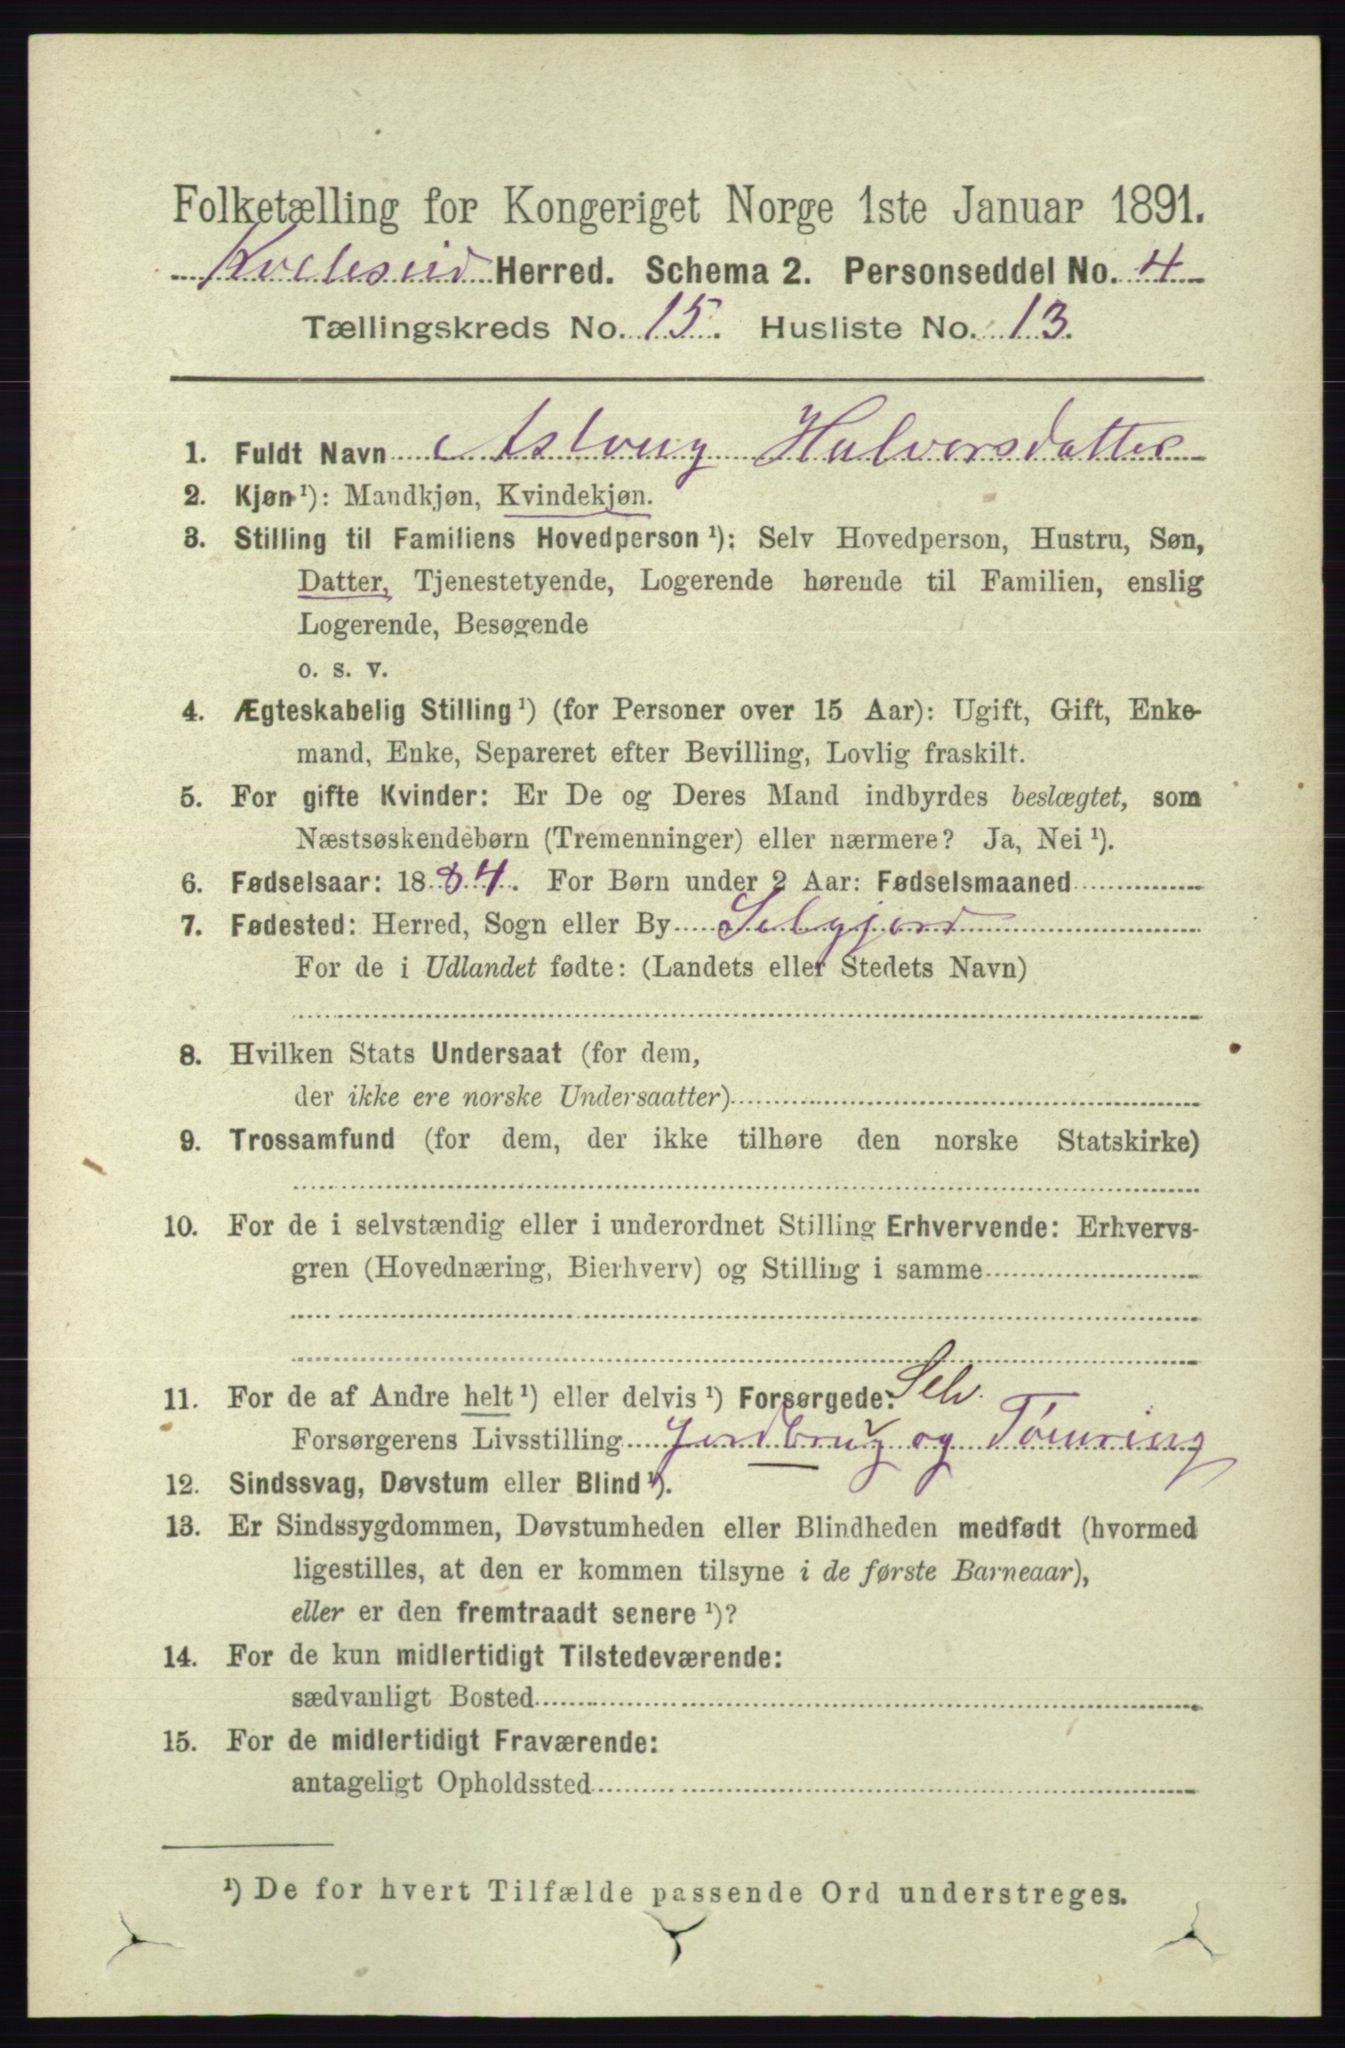 Folketælling for Kongeriget Norge 1ste Januar 1891.
Kviteseid Herred. Schema 2. Personseddel No. 4
Tællingskreds No. 15. Husliste No. 13.
1. Fuldt Navn Asloug Halvorsdatter
2. Kjøn ¹): Mandkjøn, Kvindekjøn.
3. Stilling til Familiens Hovedperson ¹): Selv Hovedperson, Hustru, Søn,
Datter, Tjenestetyende, Logerende hørende til Familien, enslig
Logerende, Besøgende
o. s. v.
4. Ægteskabelig Stilling ¹) (for Personer over 15 Aar): Ugift, Gift, Enke-
mand, Enke, Separeret efter Bevilling, Lovlig fraskilt.
5. For gifte Kvinder: Er De og Deres Mand indbyrdes beslægtet, som
Næstsøskendebørn (Tremenninger) eller nærmere? Ja, Nei ¹).
6. Fødselsaar: 1884. For Børn under 2 Aar: Fødselsmaaned
7. Fødested: Herred, Sogn eller By Selgjord
For de i Udlandet fødte: (Landets eller Stedets Navn)
8. Hvilken Stats Undersaat (for dem,
der ikke ere norske Undersaatter)
9. Trossamfund (for dem, der ikke tilhøre den norske Statskirke)
10. For de i selvstændig eller i underordnet Stilling Erhvervende: Erhvervs-
gren (Hovednæring, Bierhverv) og Stilling i samme
11. For de af Andre helt ¹) eller delvis ¹) Forsørgede: Selv.
Forsørgerens Livsstilling Jordbrug og Tømring
12. Sindssvag, Døvstum eller Blind ¹).
13. Er Sindssygdommen, Døvstumheden eller Blindheden medfødt (hvormed
ligestilles, at den er kommen tilsyne i de første Barneaar),
eller er den fremtraadt senere ¹)?
14. For de kun midlertidigt Tilstedeværende:
sædvanligt Bosted
15. For de midlertidigt Fraværende:
antageligt Opholdssted
¹) De for hvert Tilfælde passende Ord understreges.